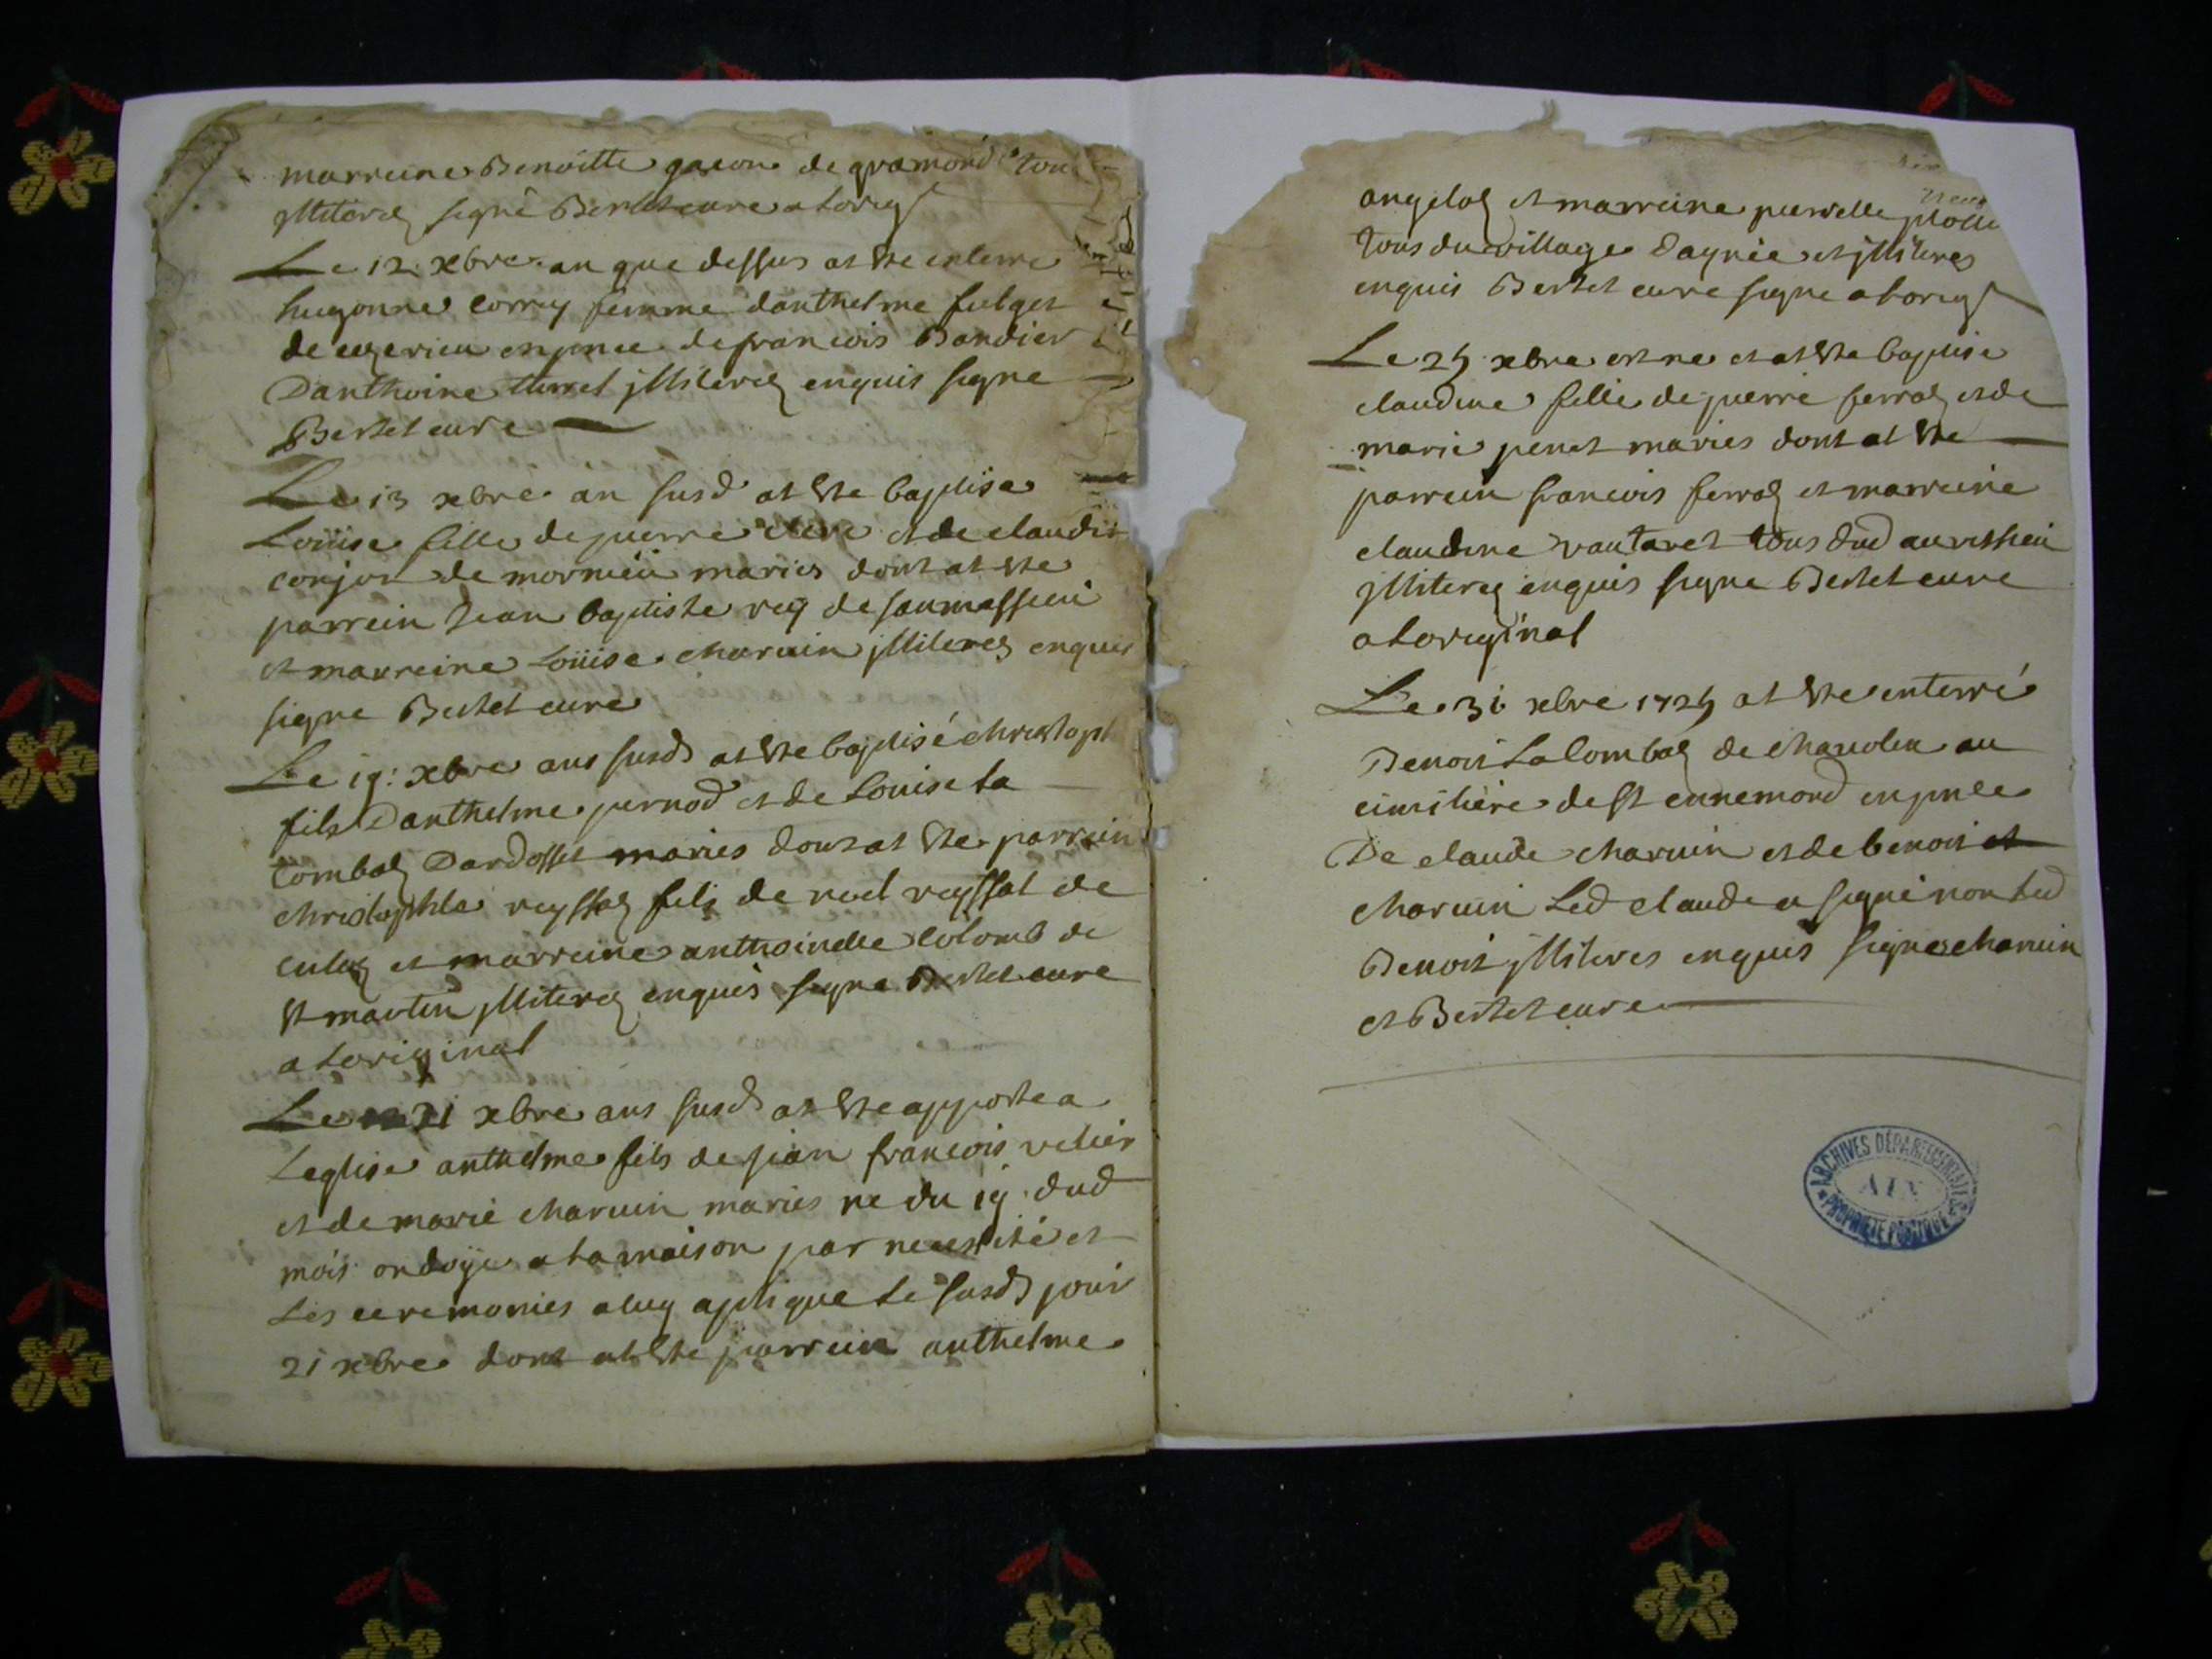 marreine Benoitte gacon de gramond tou
illiteres signé Bertet cure a lorig
Le 12 xbre an que dessus at este enterre
hugonne correy femme danthelme fulget
de cuzerieu en pnce de francois Bandier
Danthoine turrel illiteres enquis signe
Bertet cure
Le 13 xbre an susd at este baptisé
Loüise fille de pierre clerc et de claudie
conjon de mornieu maries dont at este
parrein Jean baptiste rey de saumassieu
et marreine Loüise charuin illiteres enquis
signe Bertet cure
Le 19: xbre ans susd at este baptisé christoph
fils Danthelme pernod et de Louise la
Combaz Dardosset maries dont at este parrein
christophle reyssaz fils de noel reyssat de
culoz et marreine anthoinette Colomb de
St martin illiteres enquis signe Bertet cure
a loriginal
Le 21 xbre ans susd at este apporte a
Leglise anthelme fils de jean francois velien
et de marie charuin maries ne du 19 dud
mois ondoye a la maison par necessité et
les ceremonies a luy aplique le susd jour
21 xbre dont at este parrein anthelme
angeloz et marreine pierrette
tous du village dagnie et illiteres
enquis Bertet cure signe a lorig
Le 25 xbre est ne et at este baptise
claudine fille de pierre ferraz et de
marie penet maries dont at este
parrein francois ferraz et marreine
claudine vantaret tous dud auressieu
illiteres enquis signe Bertet cure
a loriginal
Le 31 xbre 1725 at este enterré
Benoit La Combaz de chauolen au
cimitiere de St ennemond en pnce
De claude charuin et de benoit et
charuin Led claude a signé non led
Benoit illiteres enquis signes charuin
et Bertet cure
ARCHIVES DÉPARTEMENTALES
AIN
PROPRIÉTÉ PUBLIQUE